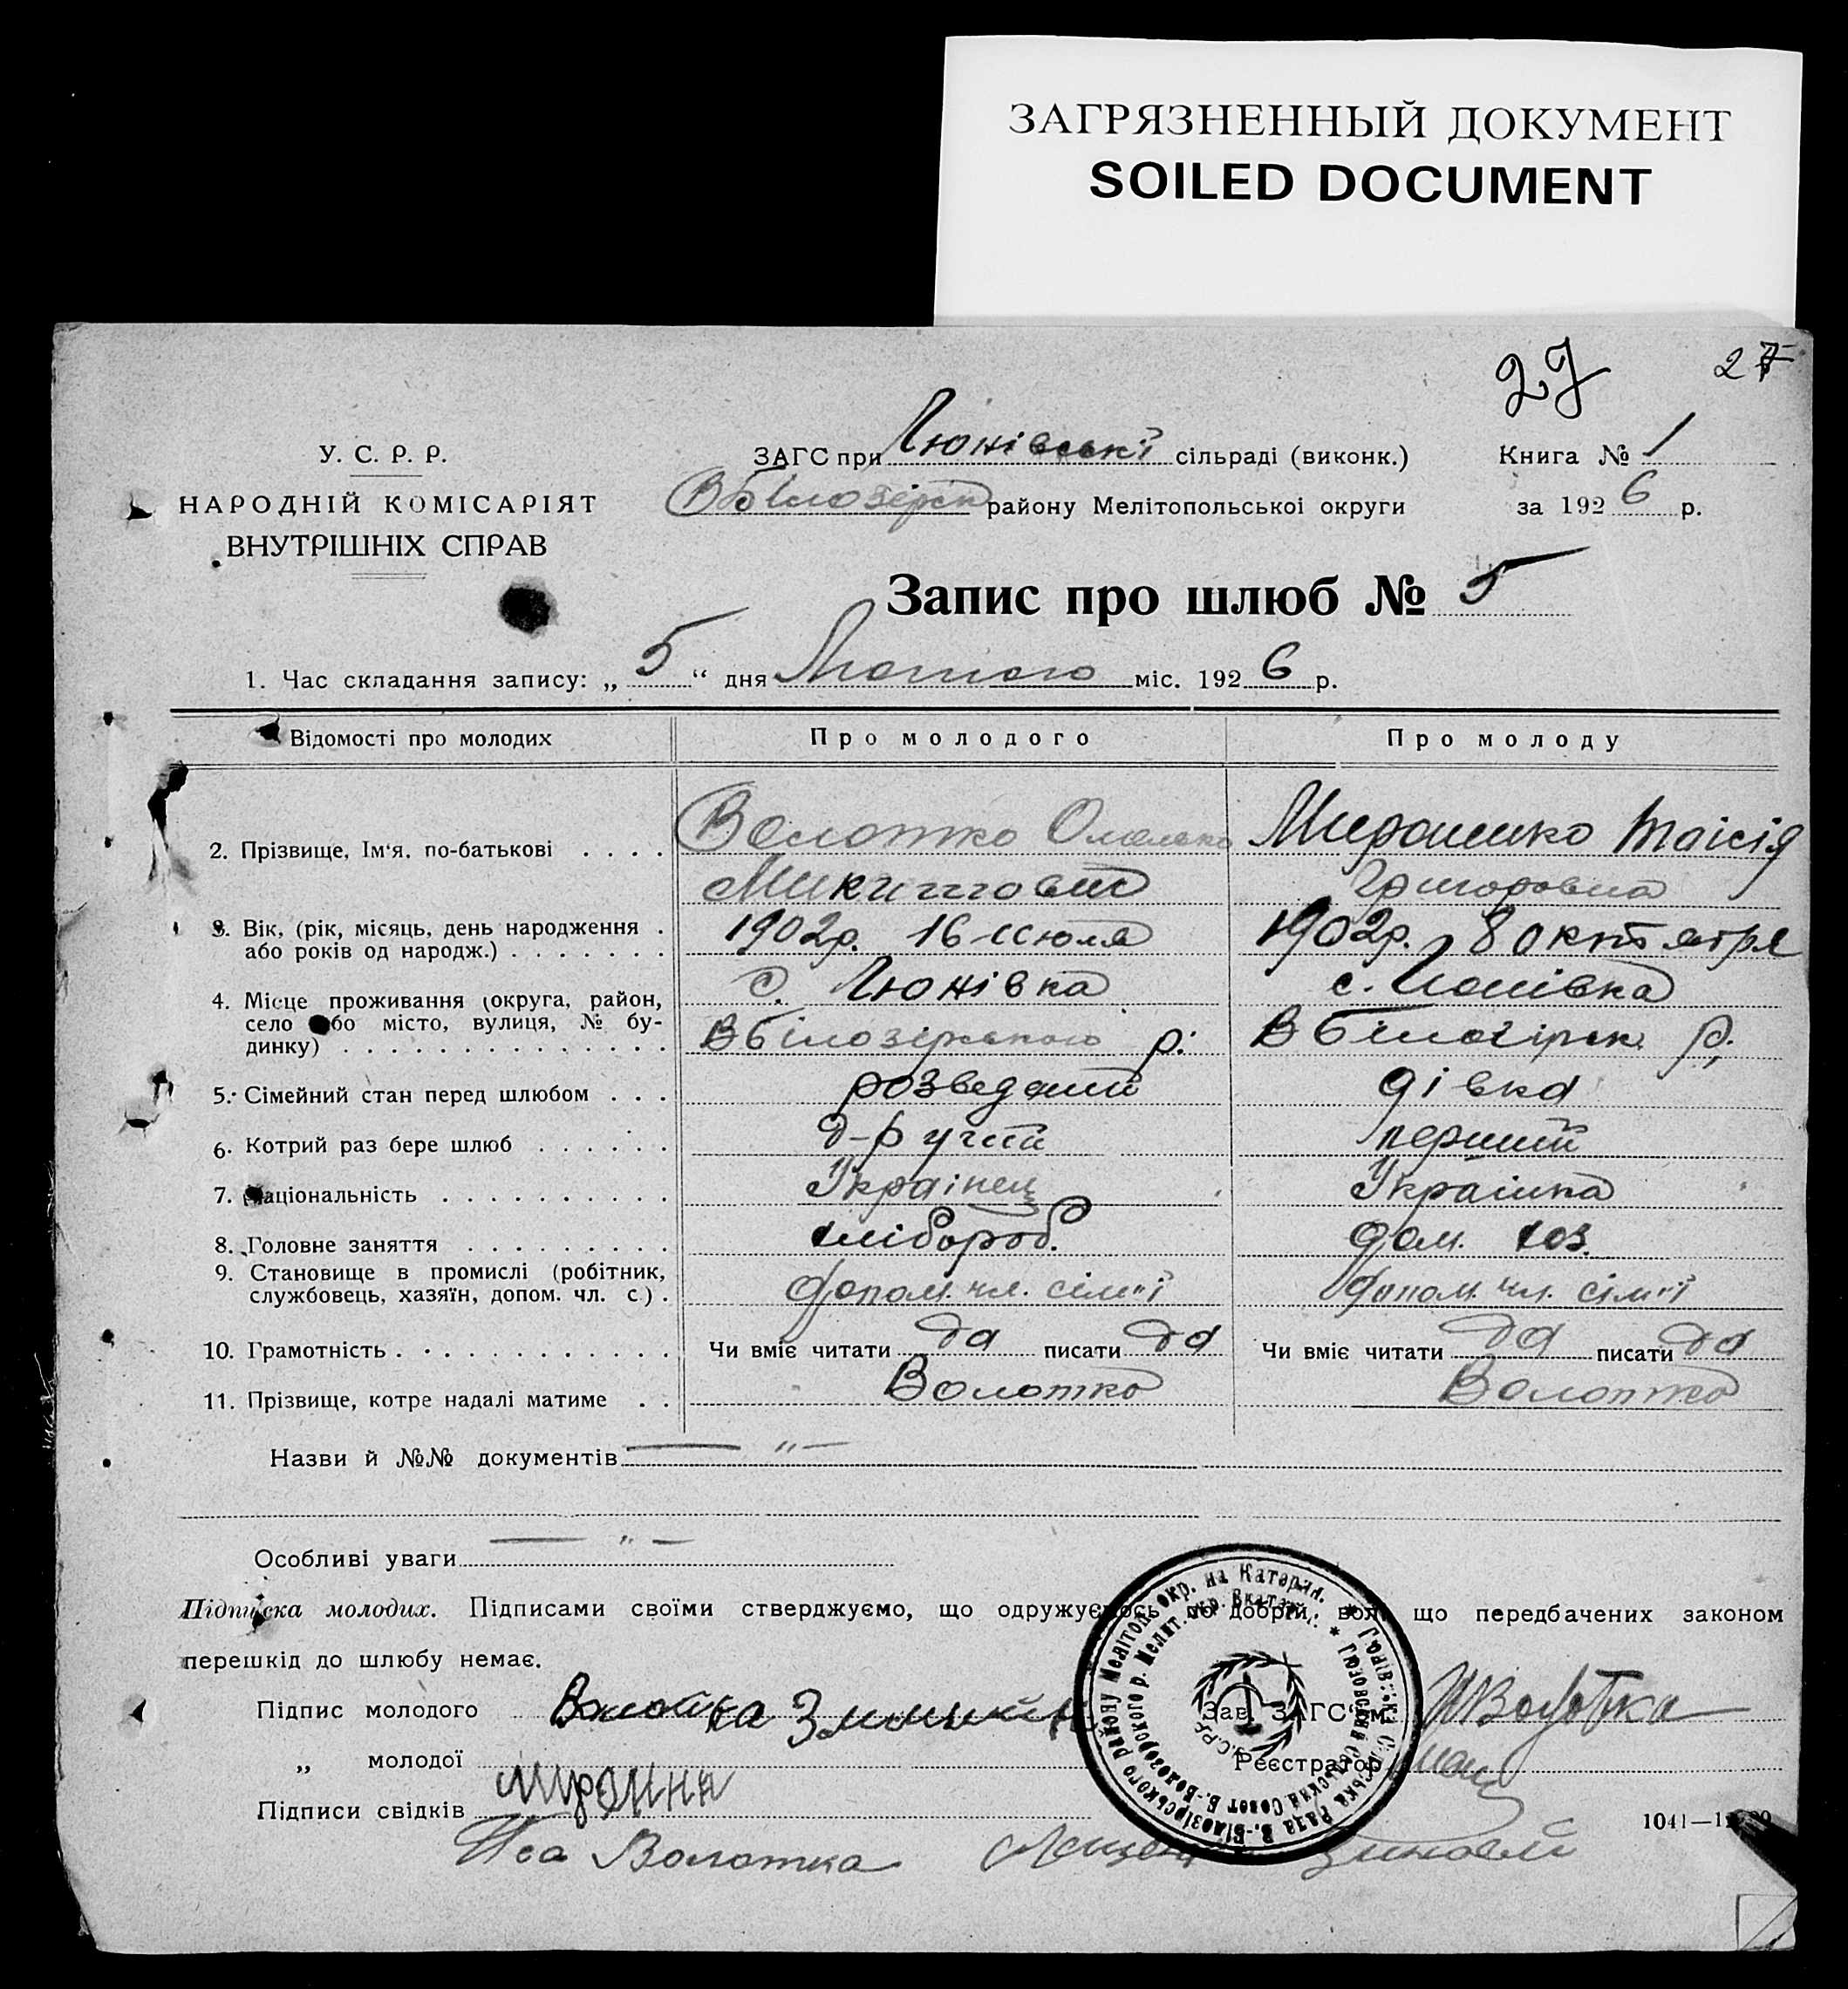 ЗАГРЯЗНЕННЫЙ ДОКУМЕНТ
SOILED DOCUMENT
27 27
У. С. Р. Р.
НАРОДНІЙ КОМІСАРІЯТ
ВНУТРІШНІХ СПРАВ
ЗАГС при Гюнівські сільраді (виконк.) Книга № 1
ВБілозірск району Мелітопольськоі округи за 1926 р.
Запис про шлюб № 5
1. Час складання запису: „ 5 “ дня Лютого міс. 1926 р.
Відомості про молодих Про молодого Про молоду
2. Прізвище, Ім‘я, по-батькові Волотко Омелько Мирошнико Таісія
Микитович Григоровна
3. Вік, (рік, місяць, день народження 1902р. 16 июля 1902р. 8 октября
або років од народж.)
4. Місце проживання (округа, район, с. Гюнівка с.
село або місто, вулиця, № бу- Вбілозірського р. Вбілозірск. р.
динку)
5. Сімейний стан перед шлюбом розведений дівка
6. Котрий раз бере шлюб д-ругий перший
7. Національність Українец Украінка
8. Головне заняття хлібороб. дом. хоз.
9. Становище в промислі (робітник,
службовець, хазяїн, допом. чл. с.) допом. чл. сім"ї допом. чл. сім"ї
10. Грамотність Чи вміє читати да писати да Чи вміє читати да писати да
11. Прізвище, котре надалі матиме Волотко Волотко
Назви й №№ документів — " —
Особливі уваги — " —
Підписка молодих. Підписами своїми стверджуємо, що одружуємось по добрій волі що передбачених законом
перешкід до шлюбу немає.
Підпис молодого Зав. ЗАГС‘ом Волотка
„ молодої Реєстратор
Підписи свідків
Волотка Зиновій
1041—1